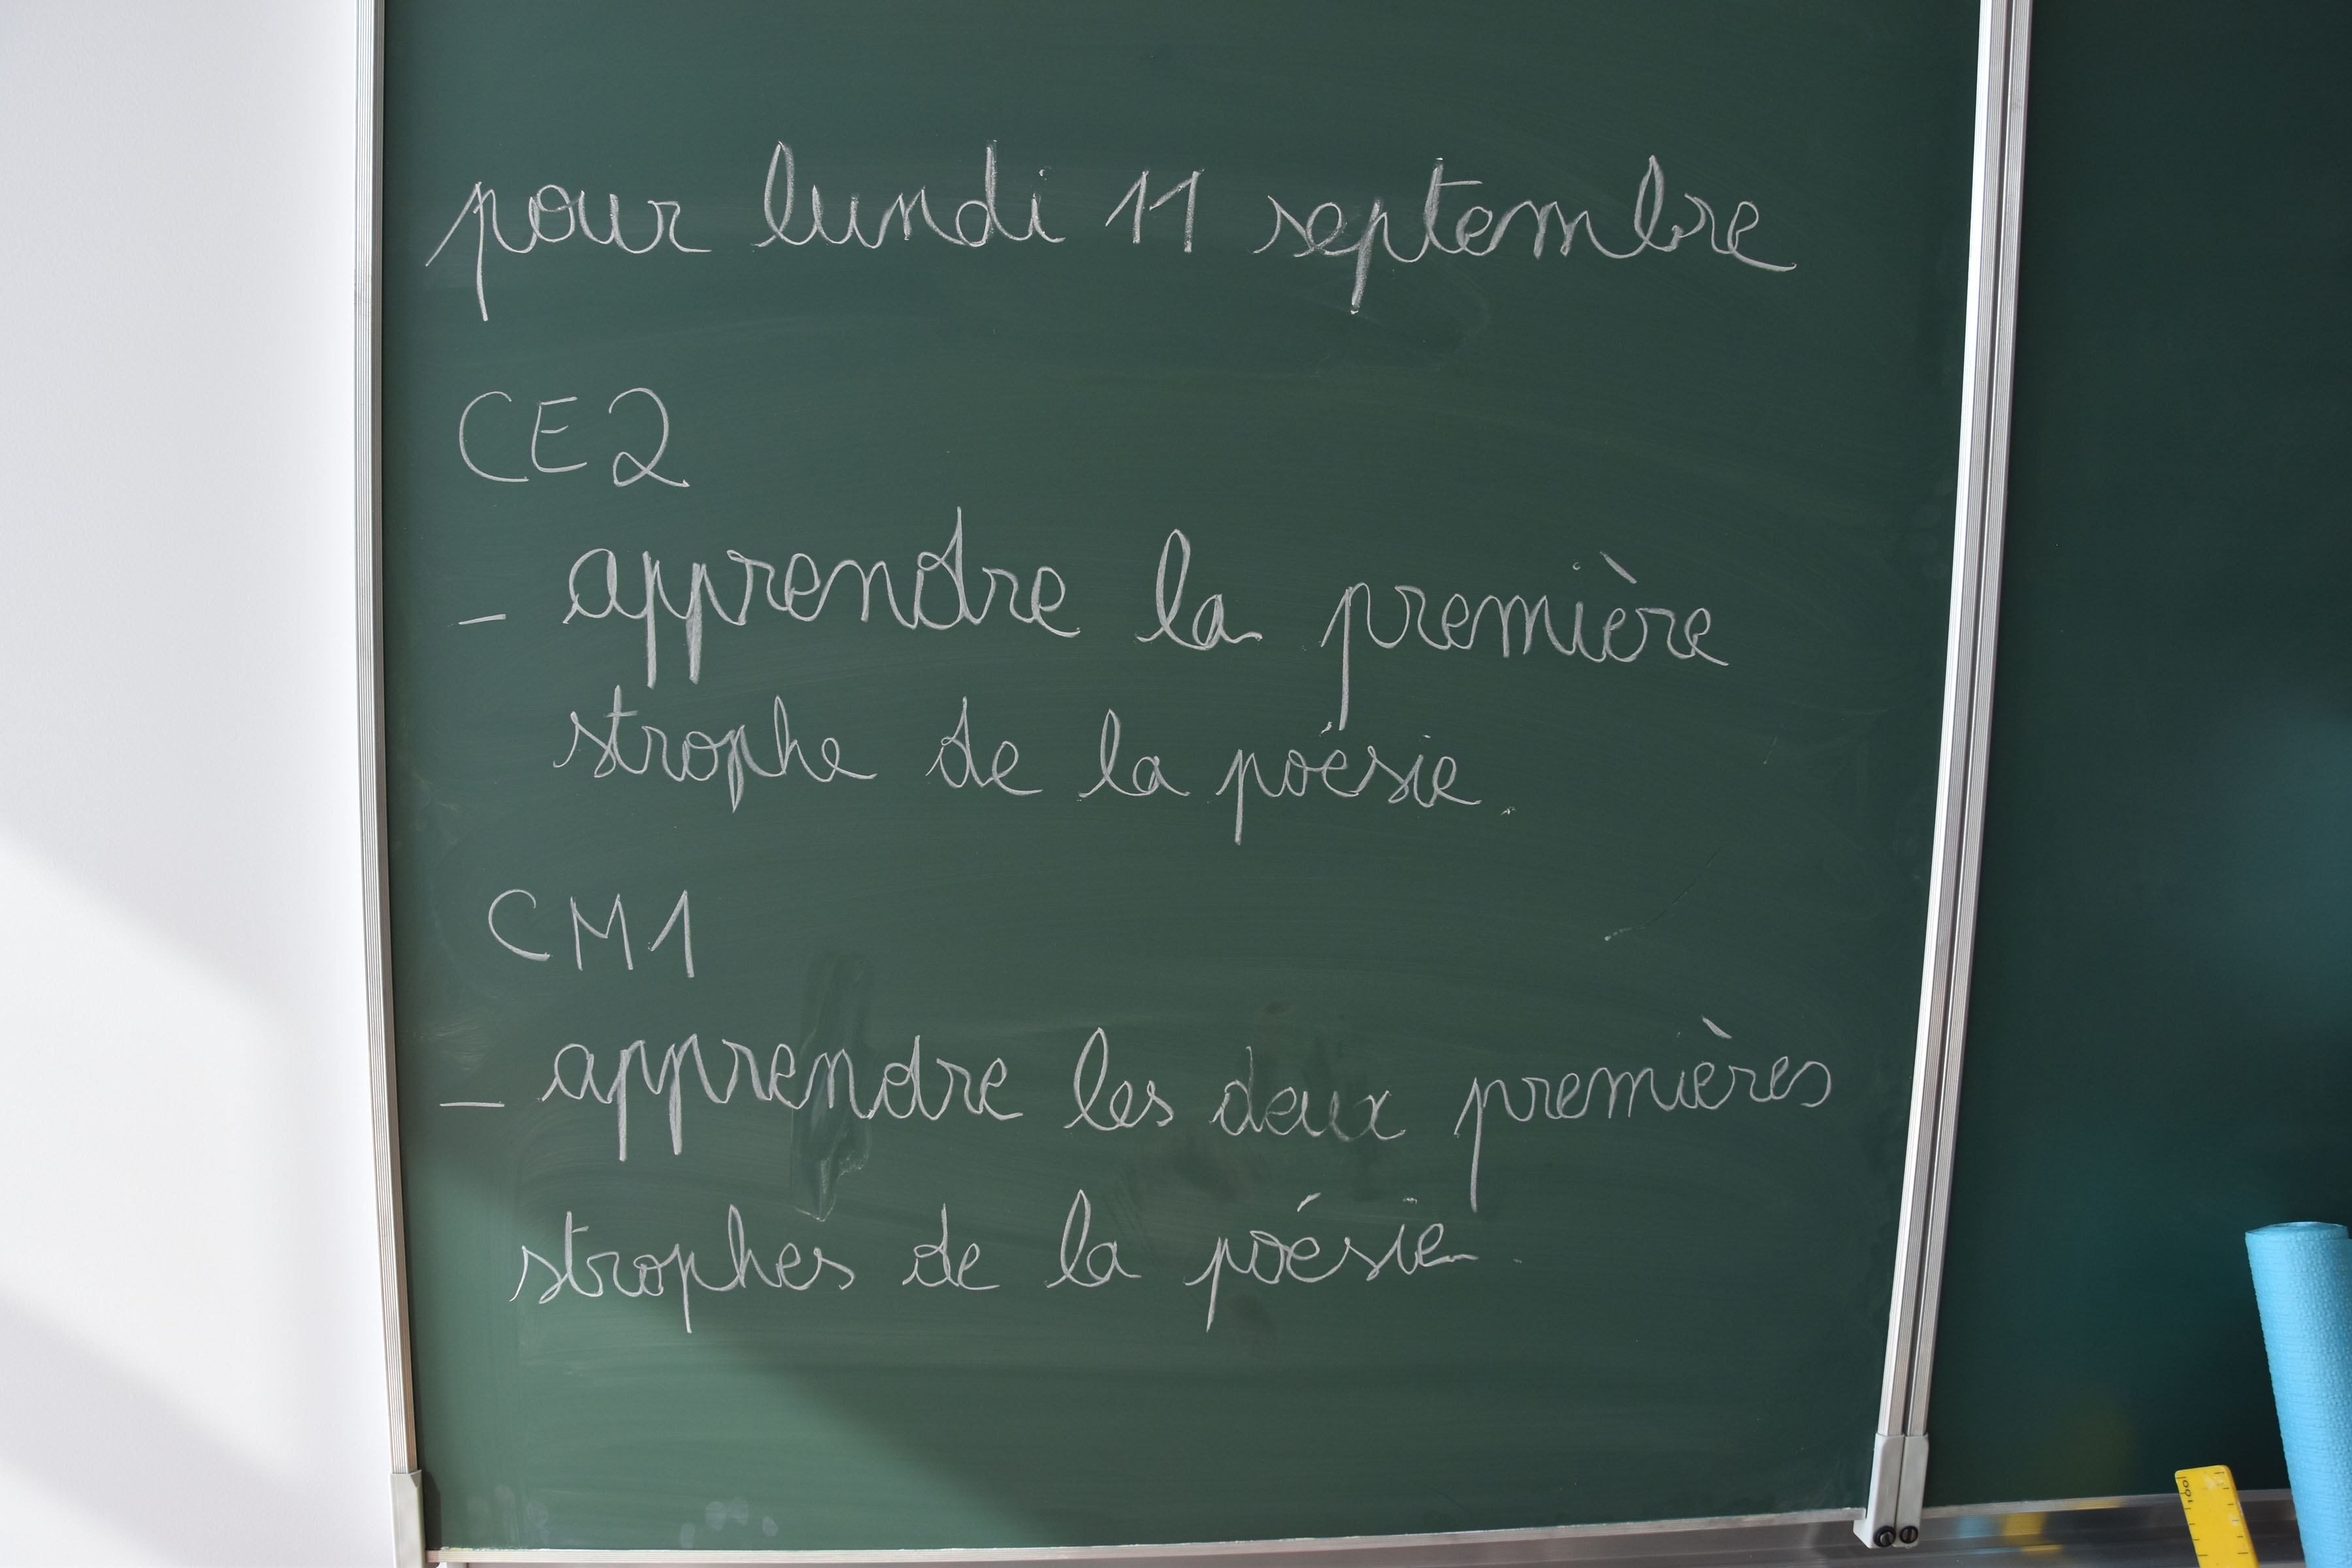 pour lundi 11 septembre
CE2
- apprendre la première
strophe de la poésie.
CM1
- apprendre les deux premières
strophes de la poésie.
100